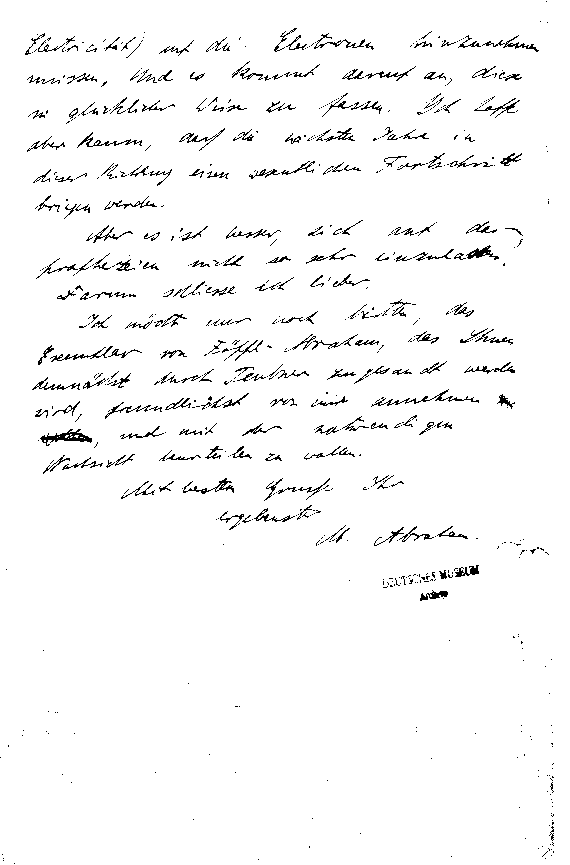 Electricität) mit die Electronen hinzunehmen
müssen, und es kommt darauf an, diese
in glücklicher Weise zu fassen. Ich hoffe
aber kaum, daß die nächsten Jahre in
dieser Richtung einen wesentlichen Fortschritt
bringen werden.
Aber es ist besser, sich auf das
prophezeien nicht so sehr einzulassen.
Darum schliesse ich lieber.
Ich möchte nur noch bitten, das
Exemplar von Föppl-Abraham, das Ihnen
demnächst durch Teubner zugesandt werden
wird, freundlichst von mir annehmen
, und mit der notwendigen
Nachsicht beurteilen zu wollen.
Mit besten Grusse Ihr
ergebenster
M. Abraham.
DEUTSCHES MUSEUM
Archiv